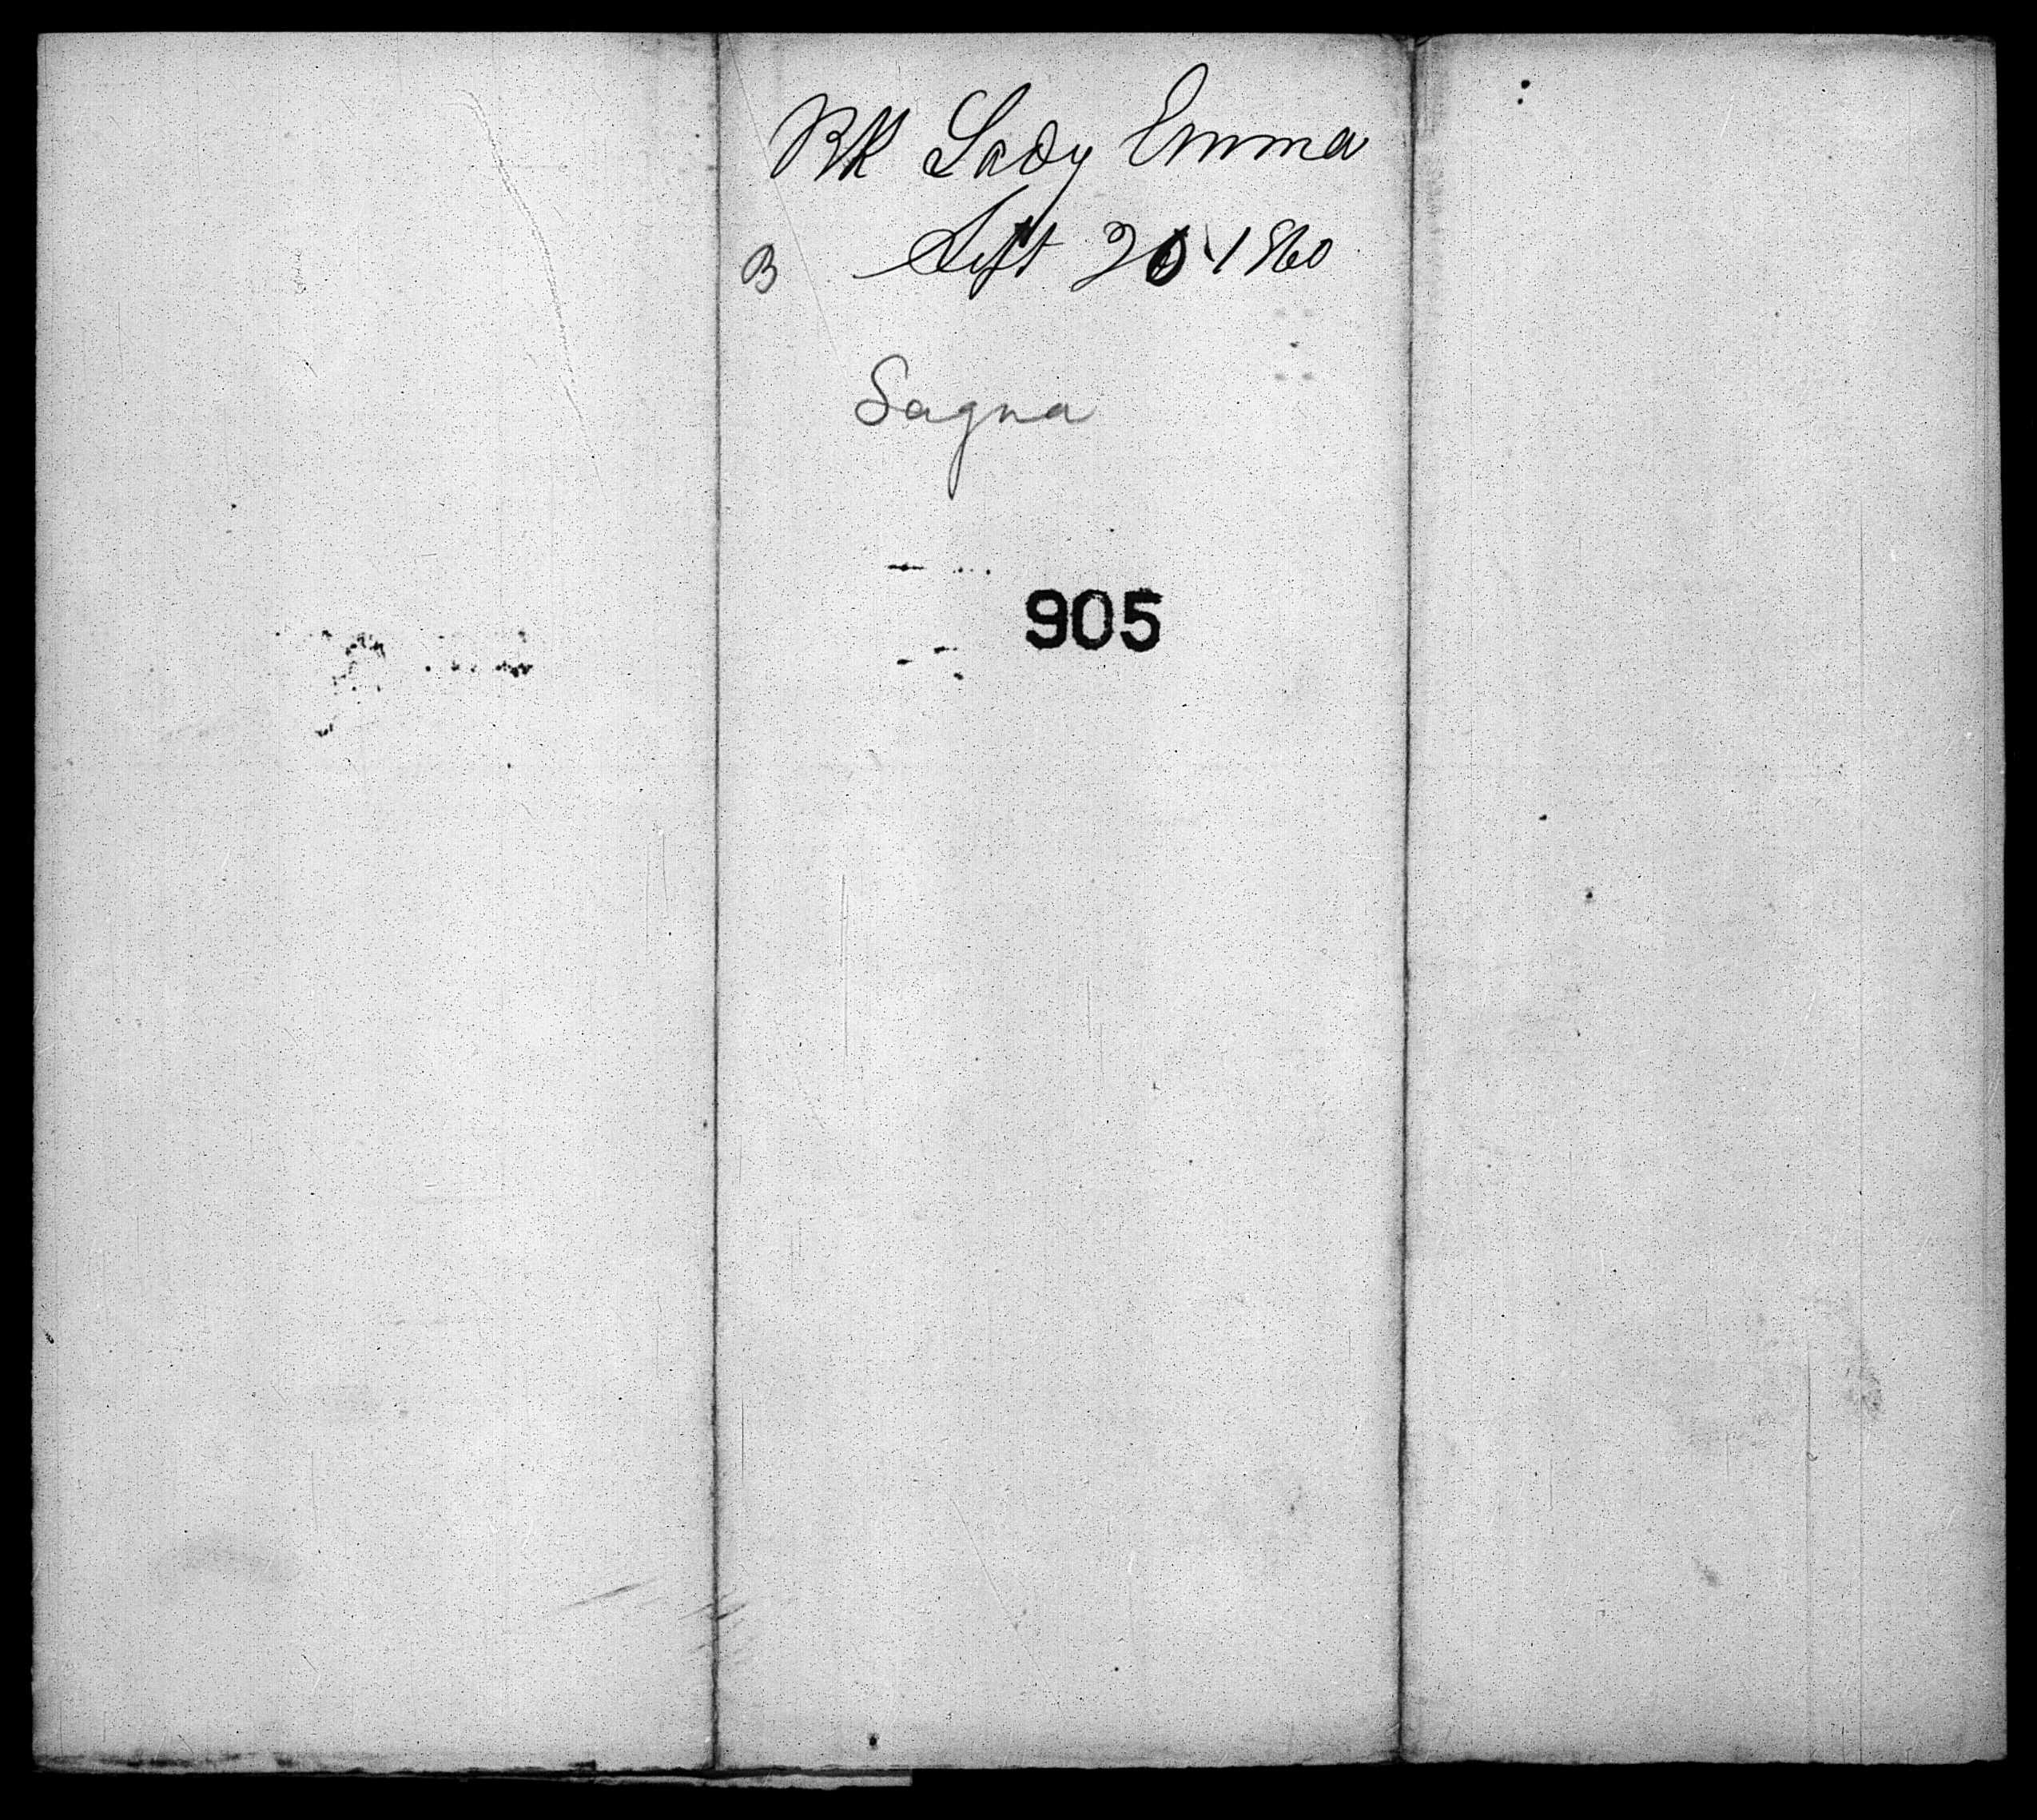 Bk Lady Emma
B Sept 20 1860
Sagua
905